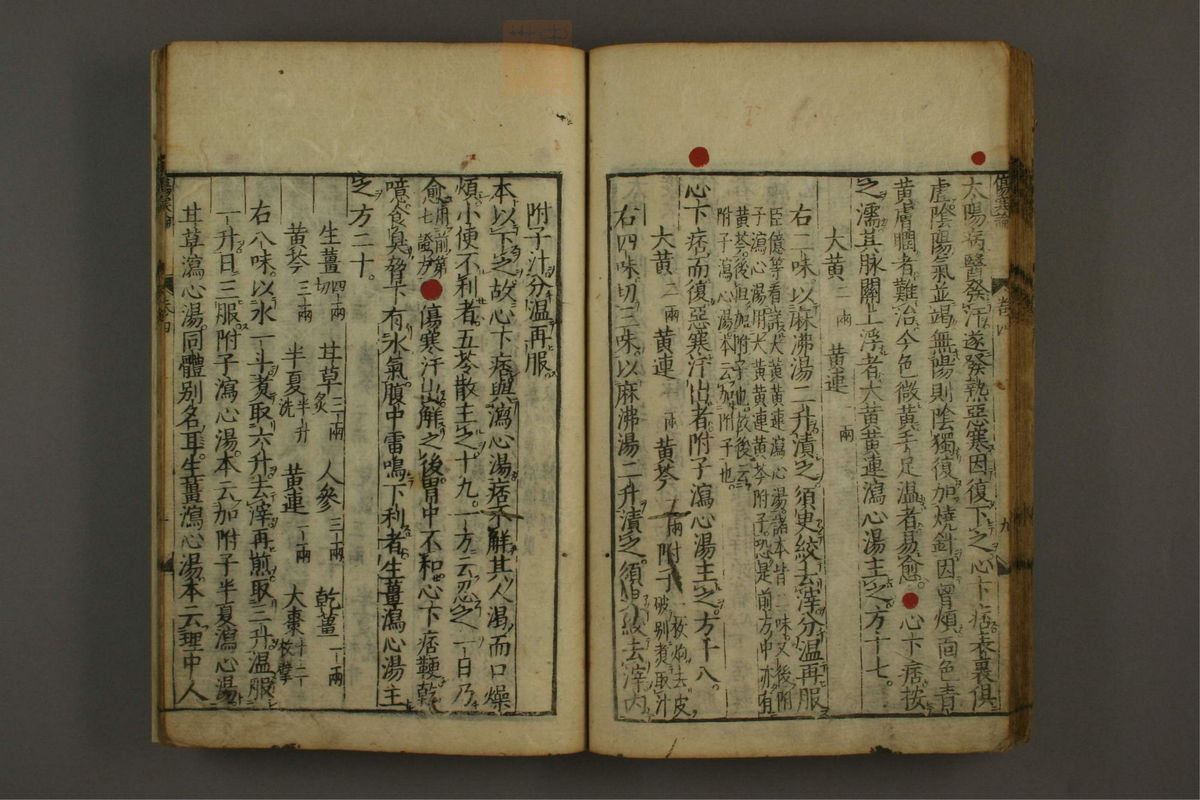 太陽病醫發汗遂發熱惡寒因復下之心下痞表裏俱
虛陰陽氣並竭無陽則陰獨復加燒針因胃煩面色青
黃膚瞤者難治今色微黃手足溫者易愈心下痞按
之濡其脉關上浮者大黃黃連瀉心湯主之方十七
大黃二兩 黃連一兩
右二味以麻沸湯二升漬之須臾絞去滓分溫再服
臣億等看詳大黃黃連瀉心湯諸本皆二味又後附
子瀉心湯用大黃黃連黃芩附子恐是前方中亦有
黃芩後但加附子也故後云
附子瀉心湯本云加附子也
心下痞而復惡寒汗出者附子瀉心湯主之方十八
大黃二兩 黃連一兩 黃芩一兩 附子一枚炮去皮破別煮取汁
右四味切三味以麻沸湯二升漬之須臾絞去滓內
附子汁分溫再服
本以下之故心下痞與瀉心湯痞不解其人渴而口燥
煩小便不利者五苓散主之十九一方云忍之一日乃
愈用前第七證方 傷寒汗出解之後胃中不和心下痞鞕乾
噫食臭脅下有水氣腹中雷鳴下利者生薑瀉心湯主
之方二十
生薑四兩切 甘草三兩炙 人參三兩 乾薑一兩
黃芩三兩 半夏半升洗 黃連一兩 大棗十二枚擘
右八味以水一斗煮取六升去滓再煎取三升溫服
一升日三服附子瀉心湯本云加附子半夏瀉心湯
甘草瀉心湯同體別名耳生薑瀉心湯本云理中人